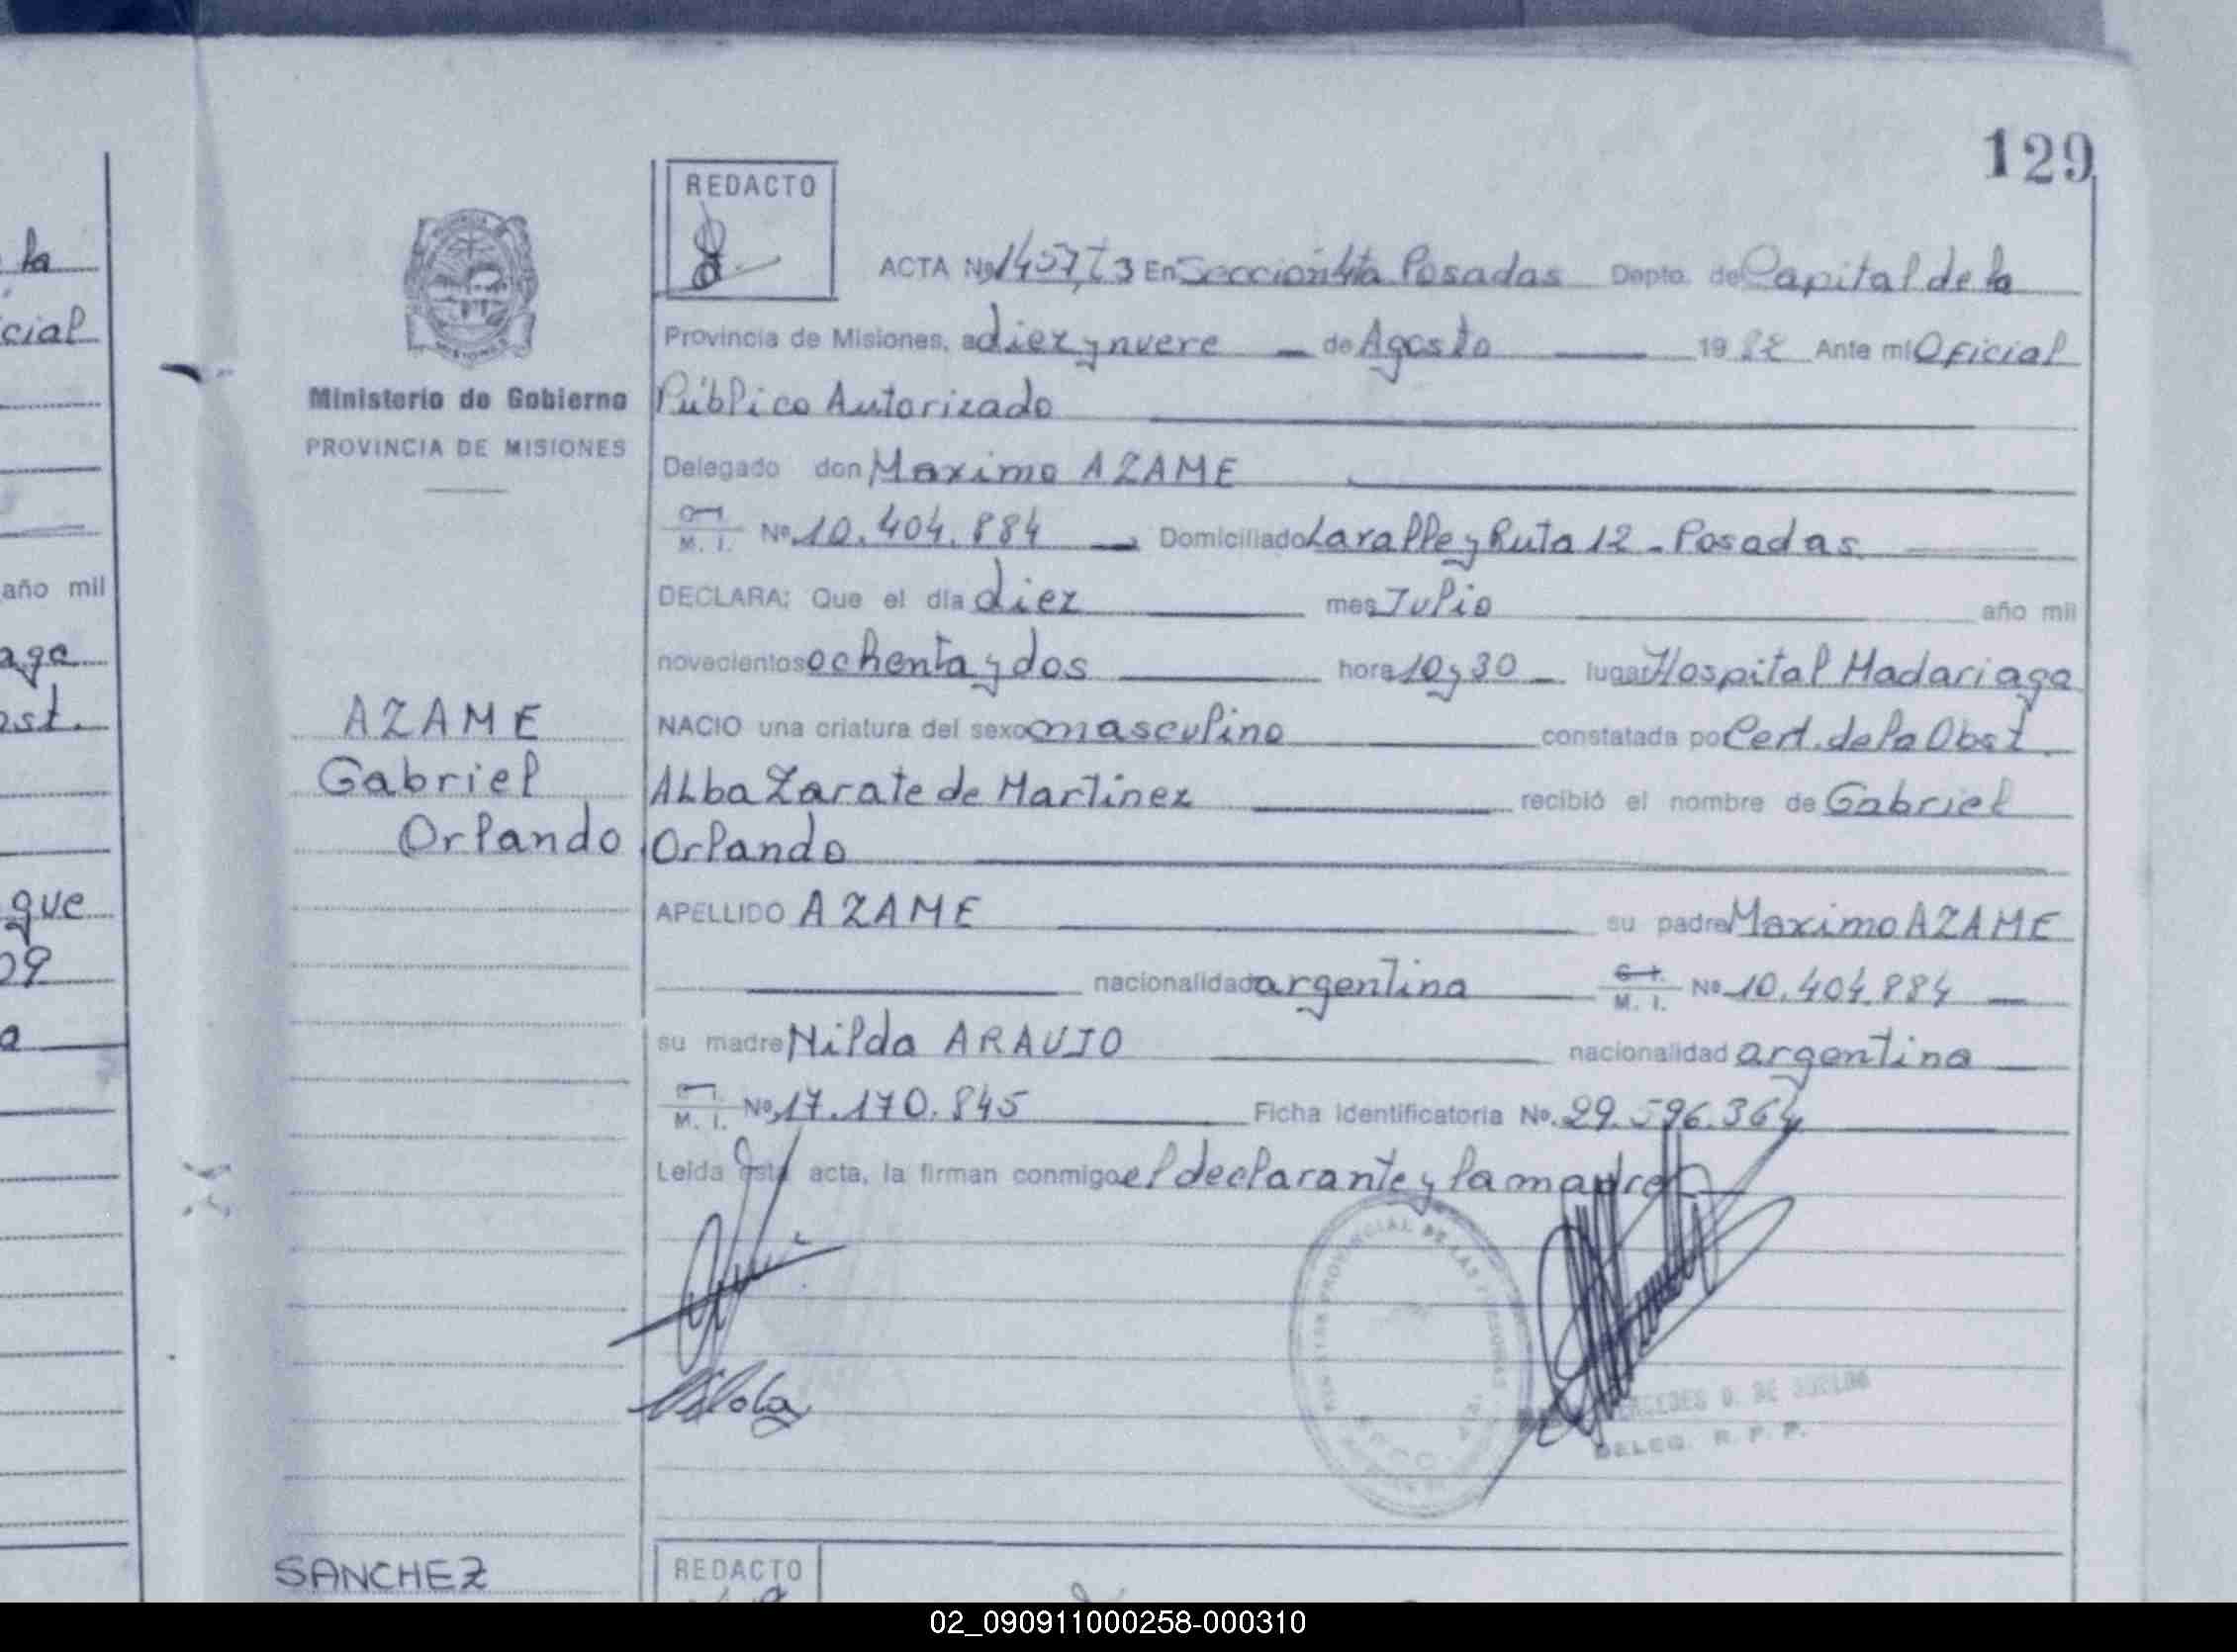 129
la
cial
año mil
aga
st.
que
09
a
MISIONES
Ministerio de Gobierno
PROVINCIA DE MISIONES
AZAME
Gabriel
Orlando
SANCHEZ
REDACTO
ACTA Nº En Sección 4ta Posadas Depto. de Capital de la
Provincia de Misiones, a diez y nueve de Agosto 1982 Ante mi Oficial
Público Autorizado
Delegado don Maximo AZAME
M. I. Nº 10.404.884 Domiciliado Lavalle y Ruta 12 - Posadas
DECLARA: Que el día diez mes Julio año mil
novecientos ochenta y dos hora 10 y 30 lugar Hospital Madariaga
NACIO una criatura del sexo masculino constatada por Cert. de la Obst.
Alba Zarate de Martinez recibió el nombre de Gabriel
Orlando
APELLIDO AZAME su padre Maximo AZAME
nacionalidad argentina C. I. M. I. Nº 10.404.884
su madre Nilda ARAUJO nacionalidad argentina
M. I. Nº 17.170.845 Ficha Identificatoria Nº. 29.596.364
Leida esta acta, la firman conmigo el declarante y la madre
Nilda
PROVINCIAL DE LAS PERSONAS
DELEG. R. P. P.
REDACTO
02_090911000258-000310